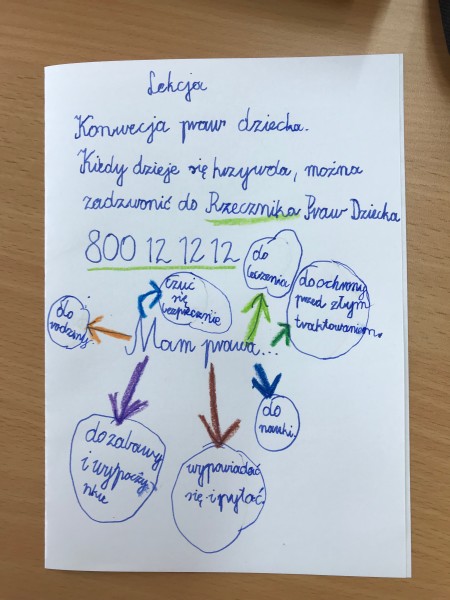 Lekcja
Konwecja praw dziecka.
Kiedy dzieje się krzywda, można
zadzwonić do Rzecznika Praw Dziecka
800 12 12 12
do
leczenia
czuć
się
bezpiecznie
do ochrony
przed złym
traktowaniem.
do
rodziny.
Mam prawo...
do
nauki.
do zabawy
i wypoczy-
nku
wypowiadać
się i pytać.